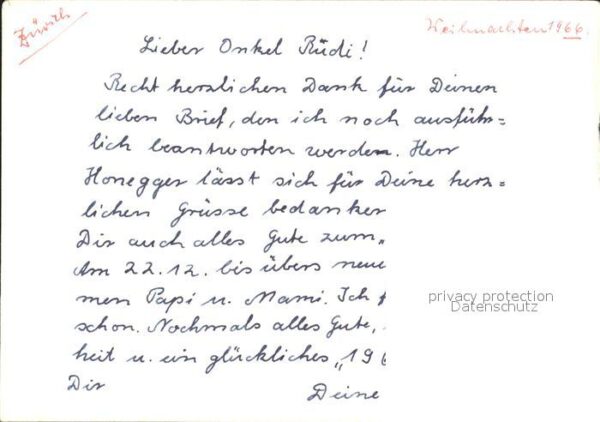 Zürich
Weihnachten 1966.
Lieber Onkel Rüdi!
Recht herzlichen Dank für Deinen
lieben Brief, den ich noch ausführ=
lich beantworten werden. Herr
Honegger lässt sich für Deine herz=
lichen Grüsse bedanken
Dir auch alles Gute zum
Am 22.12. bis übers neue
men Papi u. Mami. Ich
schon. Nochmals alles Gute,
heit u. ein glückliches „196
Dir
Deine
privacy protection
Datenschutz